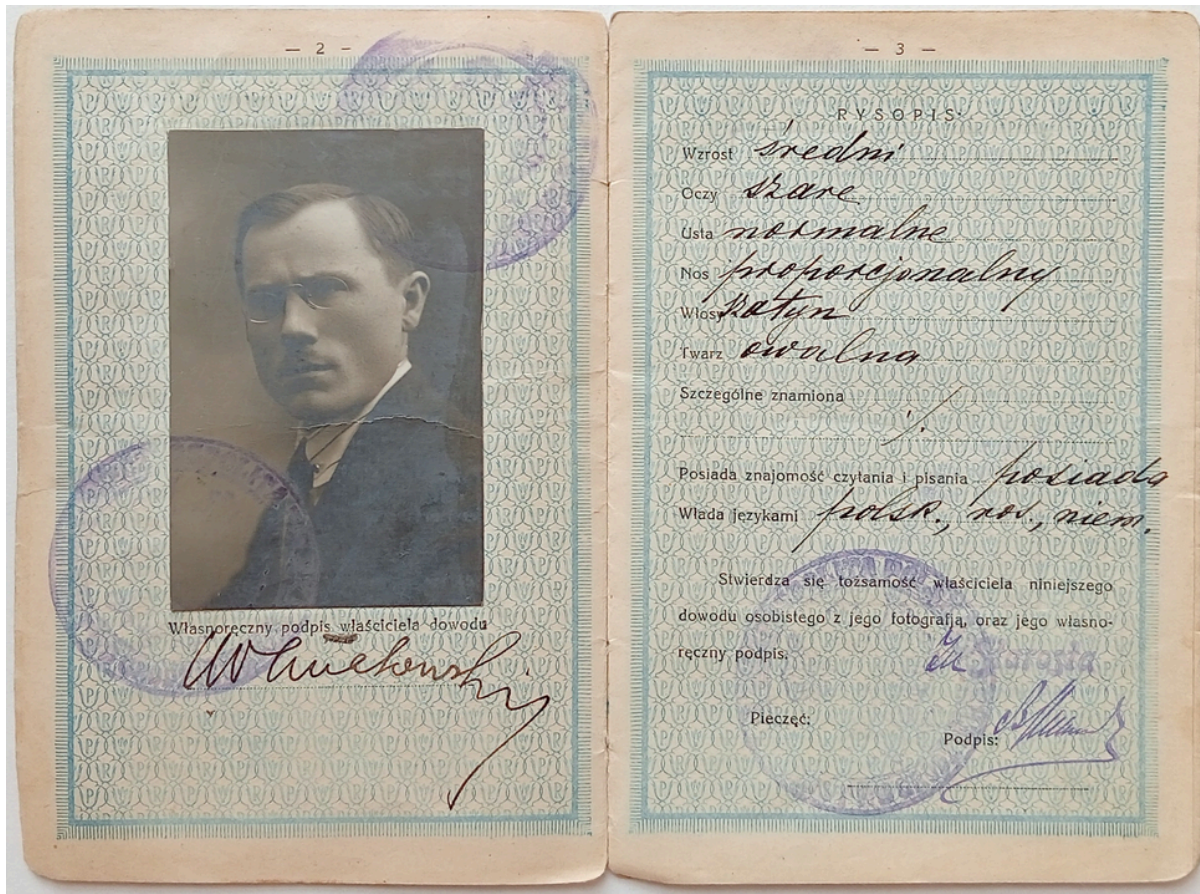 — 2 —
Własnoręczny podpis właściciela dowodu
— 3 —
RYSOPIS
Wzrost średni
Oczy szare
Usta normalne
Nos proporcjonalny
Włosy szatyn
Twarz owalna
Szczególne znamiona ./.
Posiada znajomość czytania i pisania posiada
Włada językami polsk., ros., niem.
Stwierdza się tożsamość właściciela niniejszego
dowodu osobistego z jego fotografją, oraz jego własno-
ręczny podpis.
Za Starosta
Pieczęć:
Podpis: